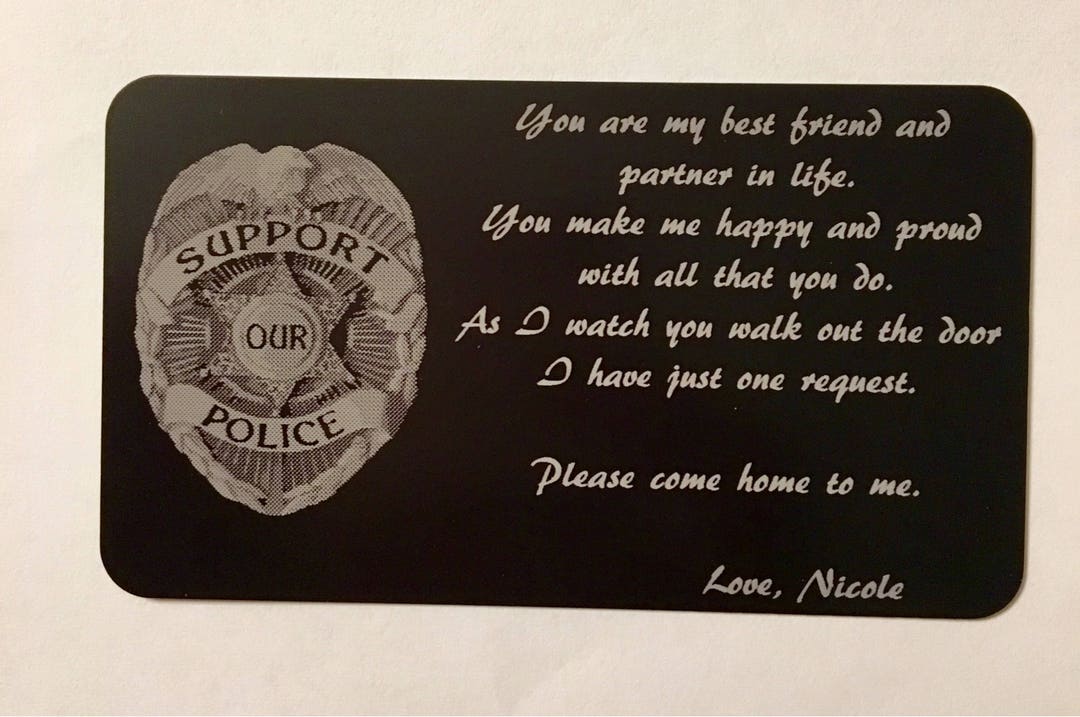 SUPPORT
OUR
POLICE
You are my best friend and
partner in life.
You make me happy and proud
with all that you do.
As I watch you walk out the door
I have just one request.
Please come home to me.
Love, Nicole